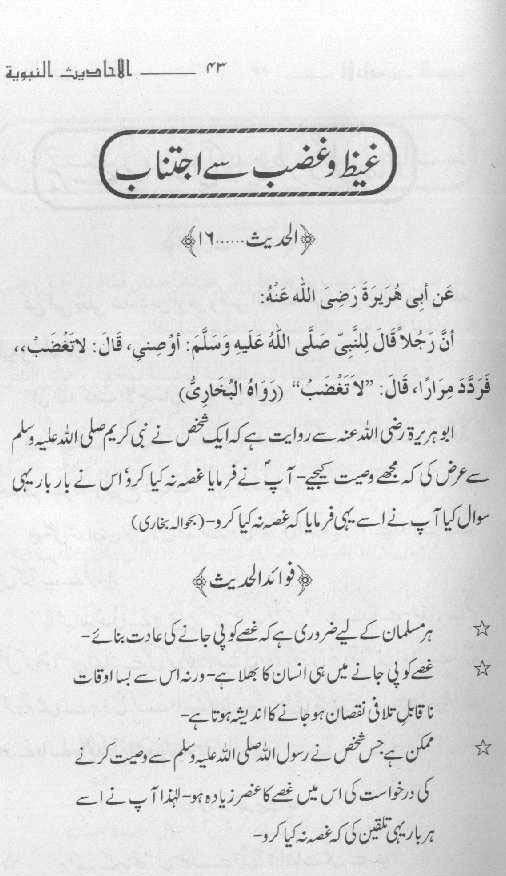 ۴۳ ——— الاحاديث النبوية
غیظ و غضب سے اجتناب
﴿الحدیث......۱۶﴾
عَن أبِى هُرَيرَةَ رَضِىَ الله عَنْهُ:
أنَّ رَجُلاً قَالَ لِلنَّبِيّ صَلَّى اللهُ عَلَيهِ وَسَلَّمَ: أوْصِنِي، قَالَ: لاتَغْضَبْ،،
فَرَدَّدَ مِرَارًا، قَالَ: ”لاَ تَغْضَبْ“ (رَوَاهُ البُخَارِىُّ)
ابو ہریرۃ رضی اللہ عنہ سے روایت ہے کہ ایک شخص نے نبی کریم صلی اللہ علیہ وسلم
سے عرض کی کہ مجھے وصیت کیجیے- آپؐ نے فرمایا غصہ نہ کیا کرو‘ اس نے بار بار یہی
سوال کیا آپ نے اسے یہی فرمایا کہ غصہ نہ کیا کرو- (بحوالہ بخاری)
﴿فوائد الحدیث﴾
☆ ہر مسلمان کے لیے ضروری ہے کہ غصے کو پی جانے کی عادت بنائے-
☆ غصے کو پی جانے میں ہی انسان کا بھلا ہے- ورنہ اس سے بسا اوقات
ناقابلِ تلافی نقصان ہو جانے کا اندیشہ ہوتا ہے-
☆ ممکن ہے جس شخص نے رسول اللہ صلی اللہ علیہ وسلم سے وصیت کرنے
کی درخواست کی اس میں غصے کا عنصر زیادہ ہو- لہٰذا آپ نے اسے
ہر بار یہی تلقین کی کہ غصہ نہ کیا کرو-